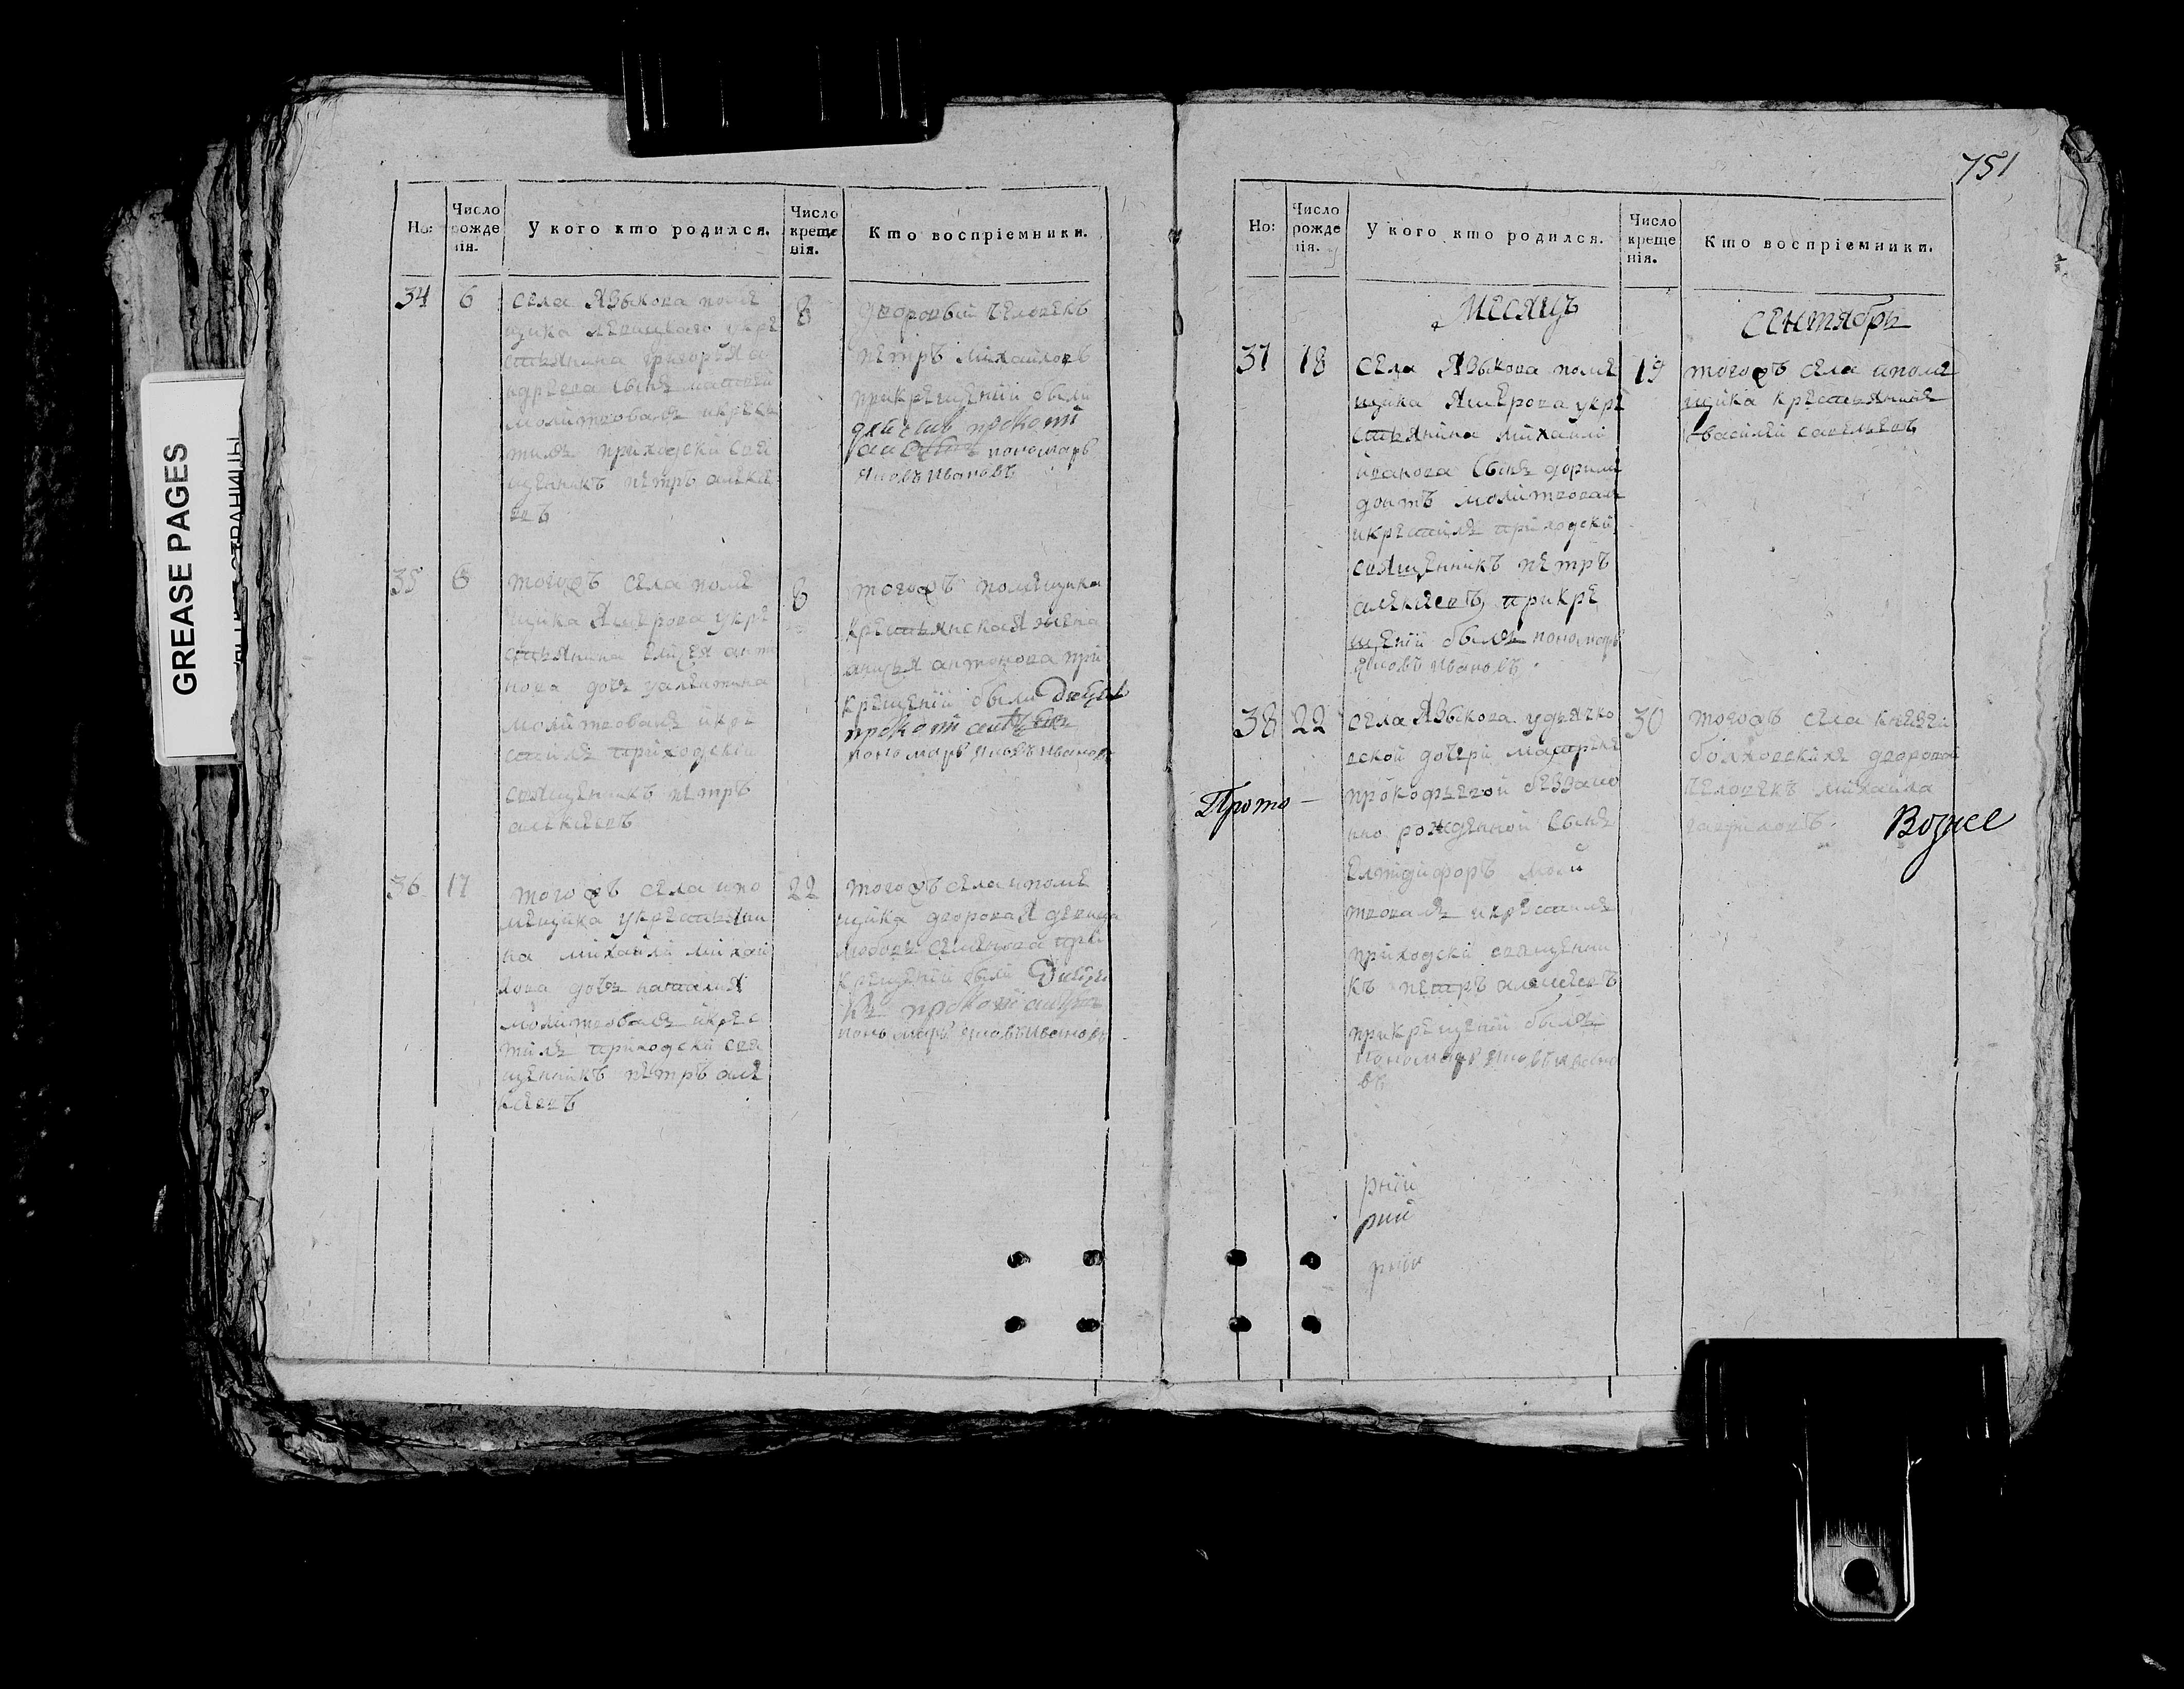 751
GREASE PAGES
Но:
Число рожденія.
У кого кто родился.
Число крещенія.
Кто воспріемники.
34
6
села Языкова поме
щика
укре
стьянина григорья а
ндреева сынъ матвей
молитвовалъ икрес
тилъ приходскй свя
щенникъ петръ алексе
евъ
8
дворовый человекъ
петръ михайловъ
прикрещеніи были
пономарь
Яковъ Ивановъ
35
6
тогожъ села поме
щика Ашерова укре
стьянина елисея анто
нова дочь
молитвовалъ икре
стилъ приходскій
священникъ петръ
алексеевъ
8
тогожъ помещика
крестьянская жена
анисья антонова при
крещеніи были
пономарь Яковъ Ивановъ
36
17
тогожъ села ипо
мещика укрестьяни
на михайла михай
лова дочь наталия
молитвовалъ икрес
тилъ приходскй свя
щенникъ петръ але
ксеевъ
22
тогожъ села ипоме
щика дворовая девица
любовь семенова при
крещеніи были
пономарь Яковъ Ивановъ
Но:
Число рожденія.
У кого кто родился.
Число крещенія.
Кто воспріемники.
Месяцъ
Сентябрь
37
18
села Языкова поме
щика Ашерова укре
стьянина михайла
иванова сынъ дорими
донтъ молитвовалъ
икрестилъ приходскій
священникъ петръ
алексеевъ прикре
щеніи былъ пономарь
Яковъ Ивановъ
19
тогожъ села ипоме
щика крестьянинъ
василей савельевъ
38
22
села Языкова удьячко
вской дочери матрены
прокофьевой беззако
нно рожденной сынъ
елпидифоръ моли
твовалъ икрестилъ
приходскй священни
къ петръ алексеевъ
прикрещеніи былъ
пономарь Яковъ Ивано
въ
30
тогожъ села князей
болховскихъ дворовой
человекъ михайла
гавриловъ
Прото-
Вознесе
рніи
рніи
рніи